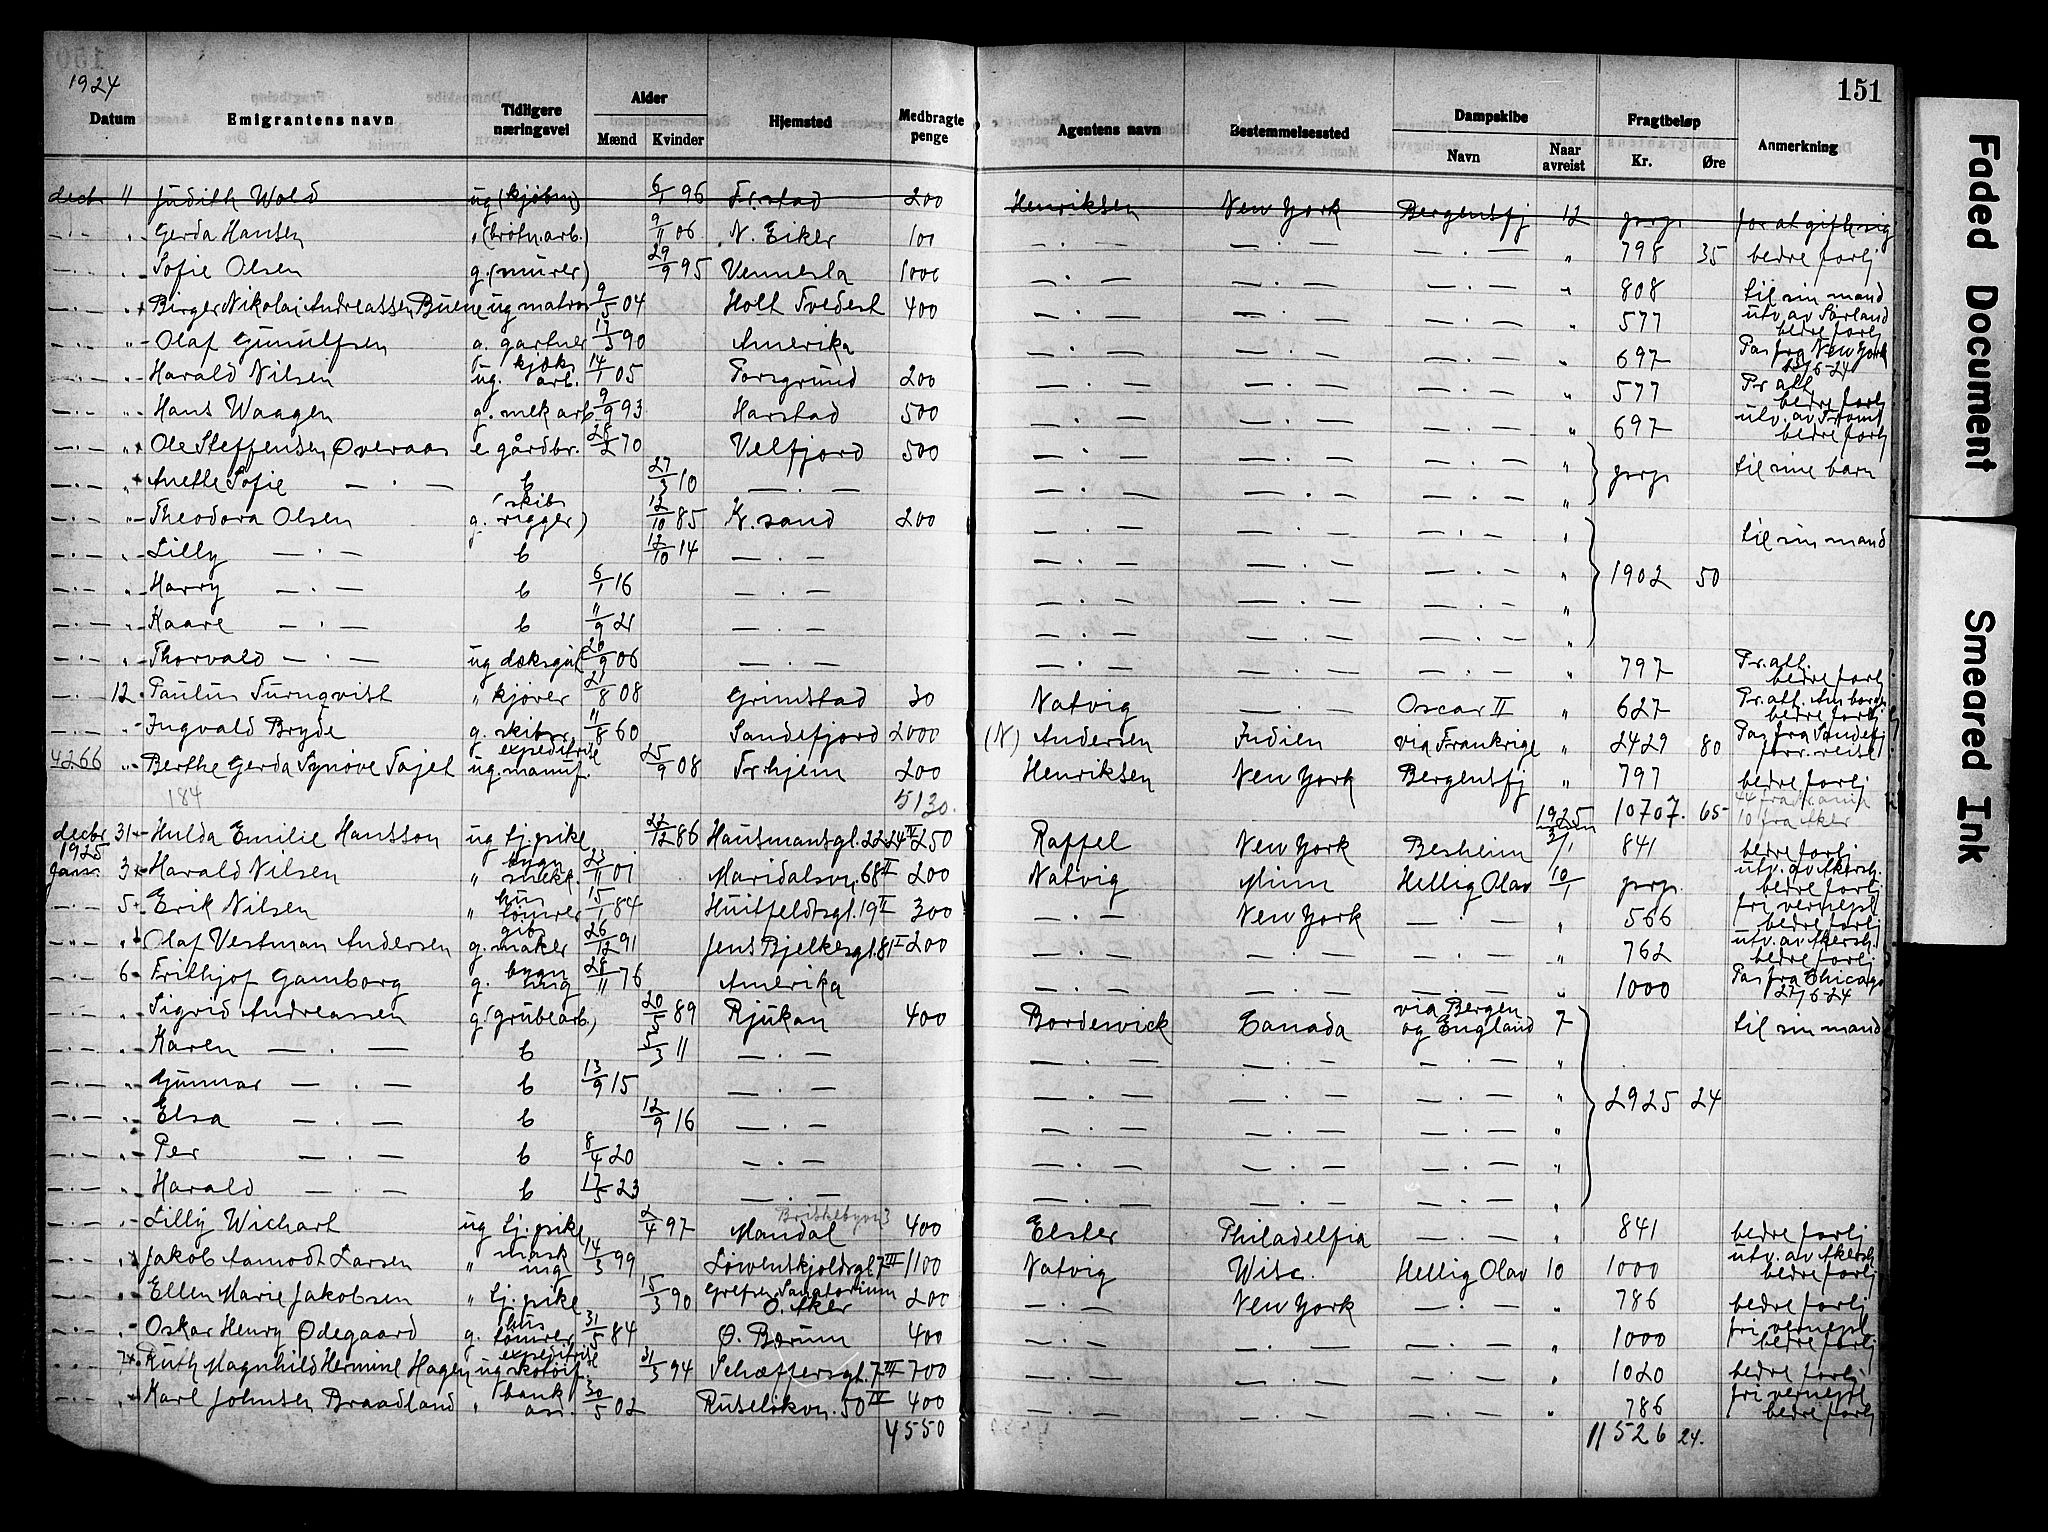 151
1924
Datum | Emigrantens navn | Tidligere næringsvei | Alder Mænd Kvinder | Hjemsted | Medbragte penge | Agentens navn | Bestemmelsessted | Dampskibe Navn | Naar avreist | Fragtbeløp Kr. Øre | Anmerkning
decbr 11 Judith Wold ug (kjøbm) 6/1 96 Fr.stad 200 Henriksen New York Bergensfj 12 prp. for at gifte sig
-"- " Gerda Hansen " (brøtn.arb.) 9/11 06 N. Eiker 100 - . - - . - - . - " 798 35 bedre forlj
-"- " Sofie Olsen g. (murer) 29/9 95 Vennesla 1000 - . - - . - - . - " 808 til sin mand
-"- " Birger Nikolai Andreassen Buene ug matros 9/5 04 Holt Tvedest 400 - . - - . - - . - " 577 utv. av Sørland bedre forlj
-"- " Olaf Gunulfsen g. gartner 17/3 90 Amerika - . - - . - - . - " 697 Pas fra New York 6-24
-"- " Harald Nilsen ug. kjøks arb. 14/1 05 Porsgrund 200 - . - - . - - . - " 577 Pr. att. bedre forlj
-"- " Hans Waagen g. mek arb. 9/9 93 Harstad 500 - . - - . - - . - " 697 utv. av Troms bedre forlj
-"- " Ole Steffensen Øveraas e. gårdbr. 28/2 70 Velfjord 500 - . - - . - - . - " prp. til sine barn
-"- " Anette Sofie - . - b 27/3 10 - . - - . - - . - - . - "
-"- " Theodora Olsen g. (skibs rigger) 12/10 85 Kr. sand 200 - . - - . - - . - " 1902 50 til sin mand
-"- " Lilly - . - b 12/10 14 - . - - . - - . - - . - "
-"- " Harry - . - b 6/1 16 - . - - . - - . - - . - "
-"- " Kaare - . - b 11/9 21 - . - - . - - . - - . - "
-"- " Thorvald - . - ug dæksgut 20/9 06 - . - - . - - . - - . - " 797 Pr. att. bedre forlj
-"- 12 Paulus Turnqvist " kjører 21/8 08 Grimstad 30 Natvig - . - Oscar II " 627 Pr. att. bedre forlj
" Ingvald Bryde g. skibsr 11/8 60 Sandefjord 2000 (N) Andersen Indien via Frankrige " 2429 80 Pas fra Sandefj forr. reise
4266 " Berthe Gerda Synøve Tøjet ug. expeditrise manuf. 25/9 08 Tr.hjem 200 Henriksen New York Bergensfj " 797 bedre forlj
184 5130. 10707. 65 10 fra Aker
decbr 31 Hulda Emilie Hansson ug tj. pike 22/12 86 Hausmansgt. 22-24 IV 250 Raffel New York Besheim 1925 3/1 841 bedre forlj
1925
jan 3 Harald Nilsen " bygn snekk. 23/11 01 Maridalsvn. 68 II 200 Natvig Minn Hellig Olav 10/1 prp. utv. av Akersh. bedre forlj
-"- 5 Erik Nilsen " hus tømrer 15/1 84 Huitfeldtsgt. 19 II 300 - . - New York - . - " 566 fri vernepl bedre forlj
-"- " Olaf Vestman Andersen g. gibs maker 26/12 91 Jens Bjelkesgt. 81 I 200 - . - - . - - . - " 762 utv. av Akersh. bedre forlj
-"- 6 Frithjof Gamborg g. bygn ing 28/11 76 Amerika - . - - . - - . - " 1000 Pas fra Chicago 27/6-24
-"- " Sigrid Andreassen g (grubearb.) 20/5 89 Rjukan 400 Bordewick Canada via Bergen og England 7 2925 24 til sin mand
-"- " Karen - . - b 5/3 11 - . - - . - - . - - . - "
-"- " Gunnar - . - b 13/9 15 - . - - . - - . - - . - "
-"- " Elsa - . - b 12/9 16 - . - - . - - . - - . - "
-"- " Per - . - b 8/4 20 - . - - . - - . - - . - "
-"- " Harald - . - b 17/5 23 - . - - . - - . - - . - "
-"- " Lilly Wichart ug tj. pike 2/4 97 Mandal 400 Elster Philadelfia - . - " 841 bedre forlj
-"- " Jakob Aamodt Larsen " mask ing 14/3 99 Løvenskjoldsgt 7 III 1100 Natvig Wisc. Hellig Olav 10 1000 utv. av Akersh. bedre forlj
-"- " Ellen Marie Jakobsen " tj. pike 15/3 90 Grefsen Sanatorium Ø. Aker 200 - . - New York - . - " 786 bedre forlj
-"- " Oskar Henry Ødegaard g. hus tømrer 31/5 84 Ø. Bærum 400 - . - - . - - . - " 1000 fri vernepl bedre forlj
-"- 7 Ruth Magnhild Hermine Hagen ug expeditrise skotøif. 31/3 94 Schæffersgt. 7 III 700 - . - - . - - . - " 1020 bedre forlj
-"- " Karl Johnsen Braadland " bank ass. 30/5 02 Ruseløkvn. 50 IV 400 - . - - . - - . - " 786 fri vernepl bedre forlj
4550 11526 24.
Faded Document
Smeared Ink